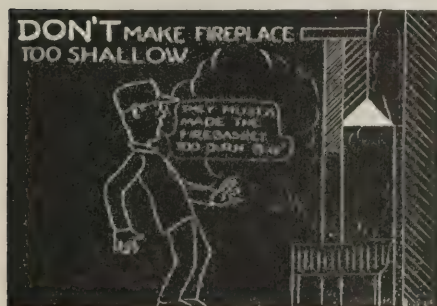 DON'T MAKE FIREPLACE
TOO SHALLOW
THEY MUSTA
MADE THE
FIREBASKET
TOO DURN BIG